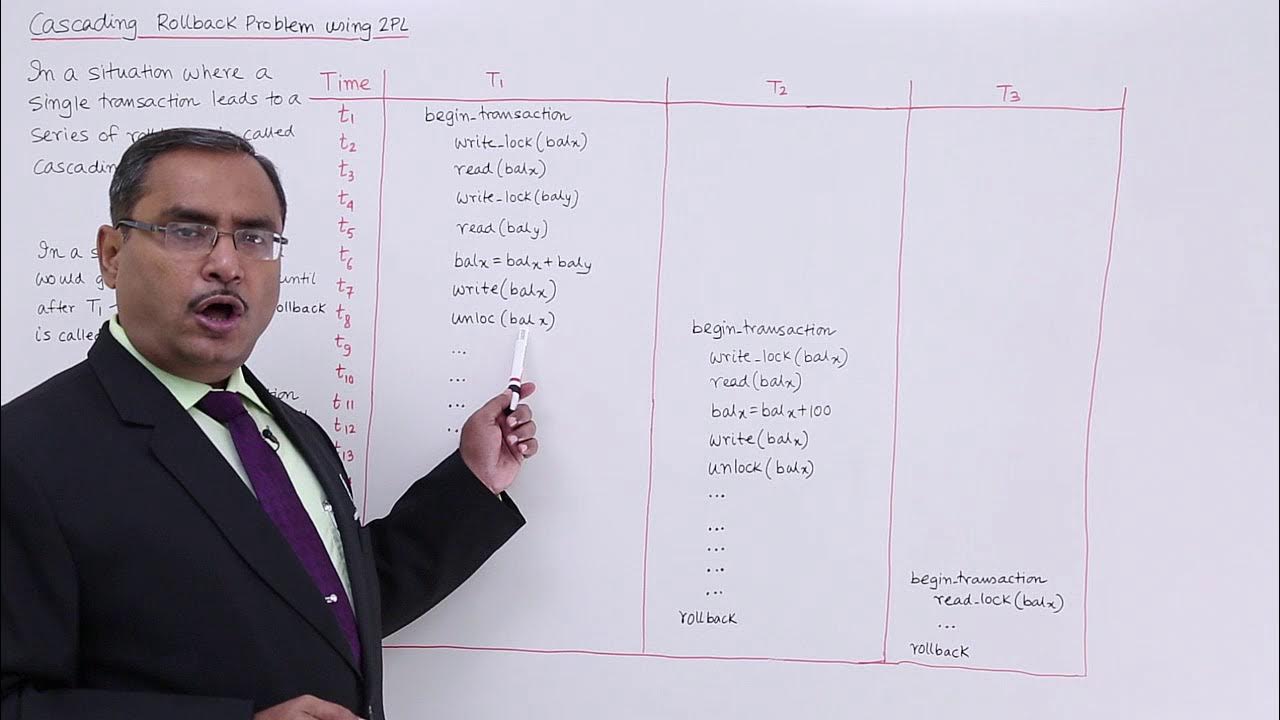 Cascading Rollback Problem using 2PL
In a situation where a
single transaction leads to a
series of called
Cascading
In a
would until
after T1 rollback
is called
Time T1 T2 T3
t1 begin_transaction
t2 write_lock(balx)
t3 read(balx)
t4 write_lock(baly)
t5 read(baly)
t6 balx=balx+baly
t7 write(balx)
t8 unloc(balx) begin_transaction
t9 ... write_lock(balx)
t10 ... read(balx)
t11 ... balx=balx+100
t12 .. write(balx)
13 unlock(balx)
...
...
...
...
... begin_transaction
read_lock(balx)
rollback ...
rollback